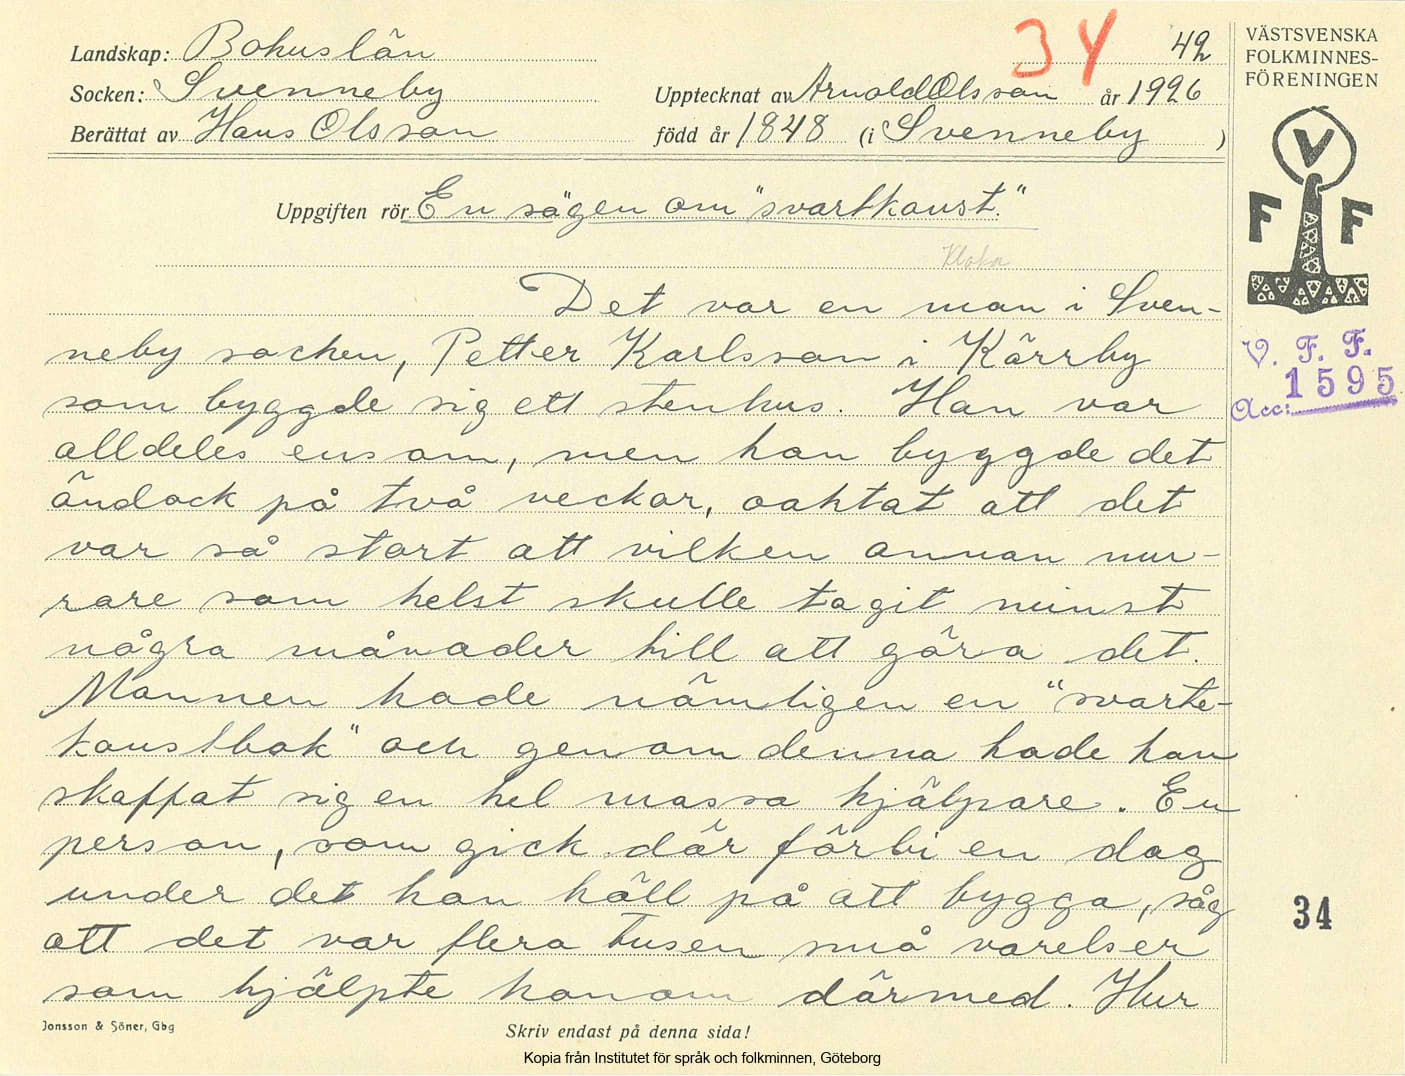 Landskap: Bohuslän
34
42
Socken: Svenneby
Upptecknat av Arnold Olsson år 1926
Berättat av Hans Olsson
född år 1848 (i Svenneby )
Uppgiften rör En sägen om "svartkonst."
Kloka
Det var en man i Sven-
neby socken, Petter Karlsson i Kärrby
som byggde sig ett stenhus. Han var
alldeles ensam, men han byggde det
ändock på två veckor, oaktat att det
var så stort att vilken annan mu-
rare som helst skulle tagit minst
några månader till att göra det.
Mannen hade nämligen en "svarte-
konstbok" och genom denna hade han
skaffat sig en hel massa hjälpare. En
person, som gick där förbi en dag
under det han höll på att bygga, såg
att det var flera tusen små varelser
som hjälpte honom därmed. Hur
Jonsson & Söner, Gbg
Skriv endast på denna sida!
Kopia från Institutet för språk och folkminnen, Göteborg
VÄSTSVENSKA
FOLKMINNES-
FÖRENINGEN
V
F F
V. F. F.
Acc: 1595
34